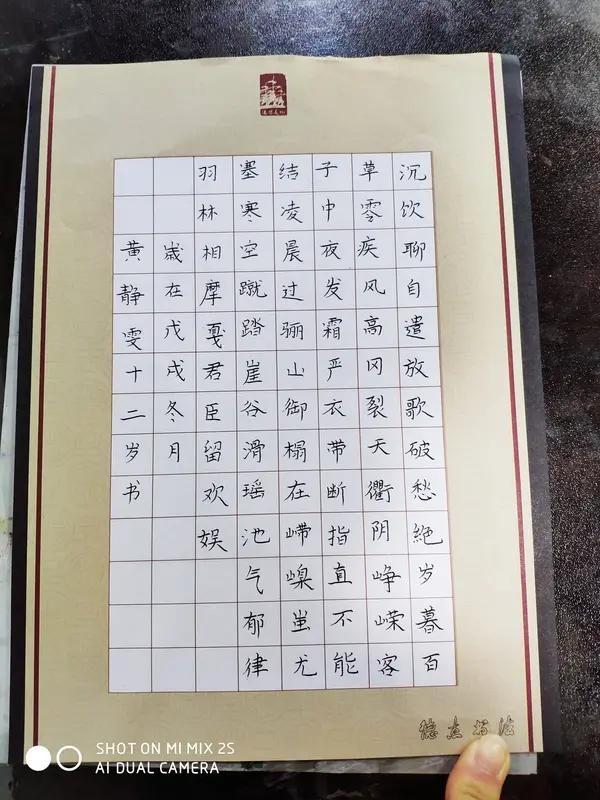 沉饮聊自遣放歌破愁絶岁暮百
草零疾风高冈裂天衢阴峥嵘客
子中夜发霜严衣带断指直不能
结凌晨过骊山御榻在嵽嵲蚩尤
塞寒空蹴踏崖谷滑瑶池气郁律
羽林相摩戛君臣留欢娱
嵗在戊戌冬月
黄静雯十二岁书
书法
SHOT ON MI MIX 2S
AI DUAL CAMERA